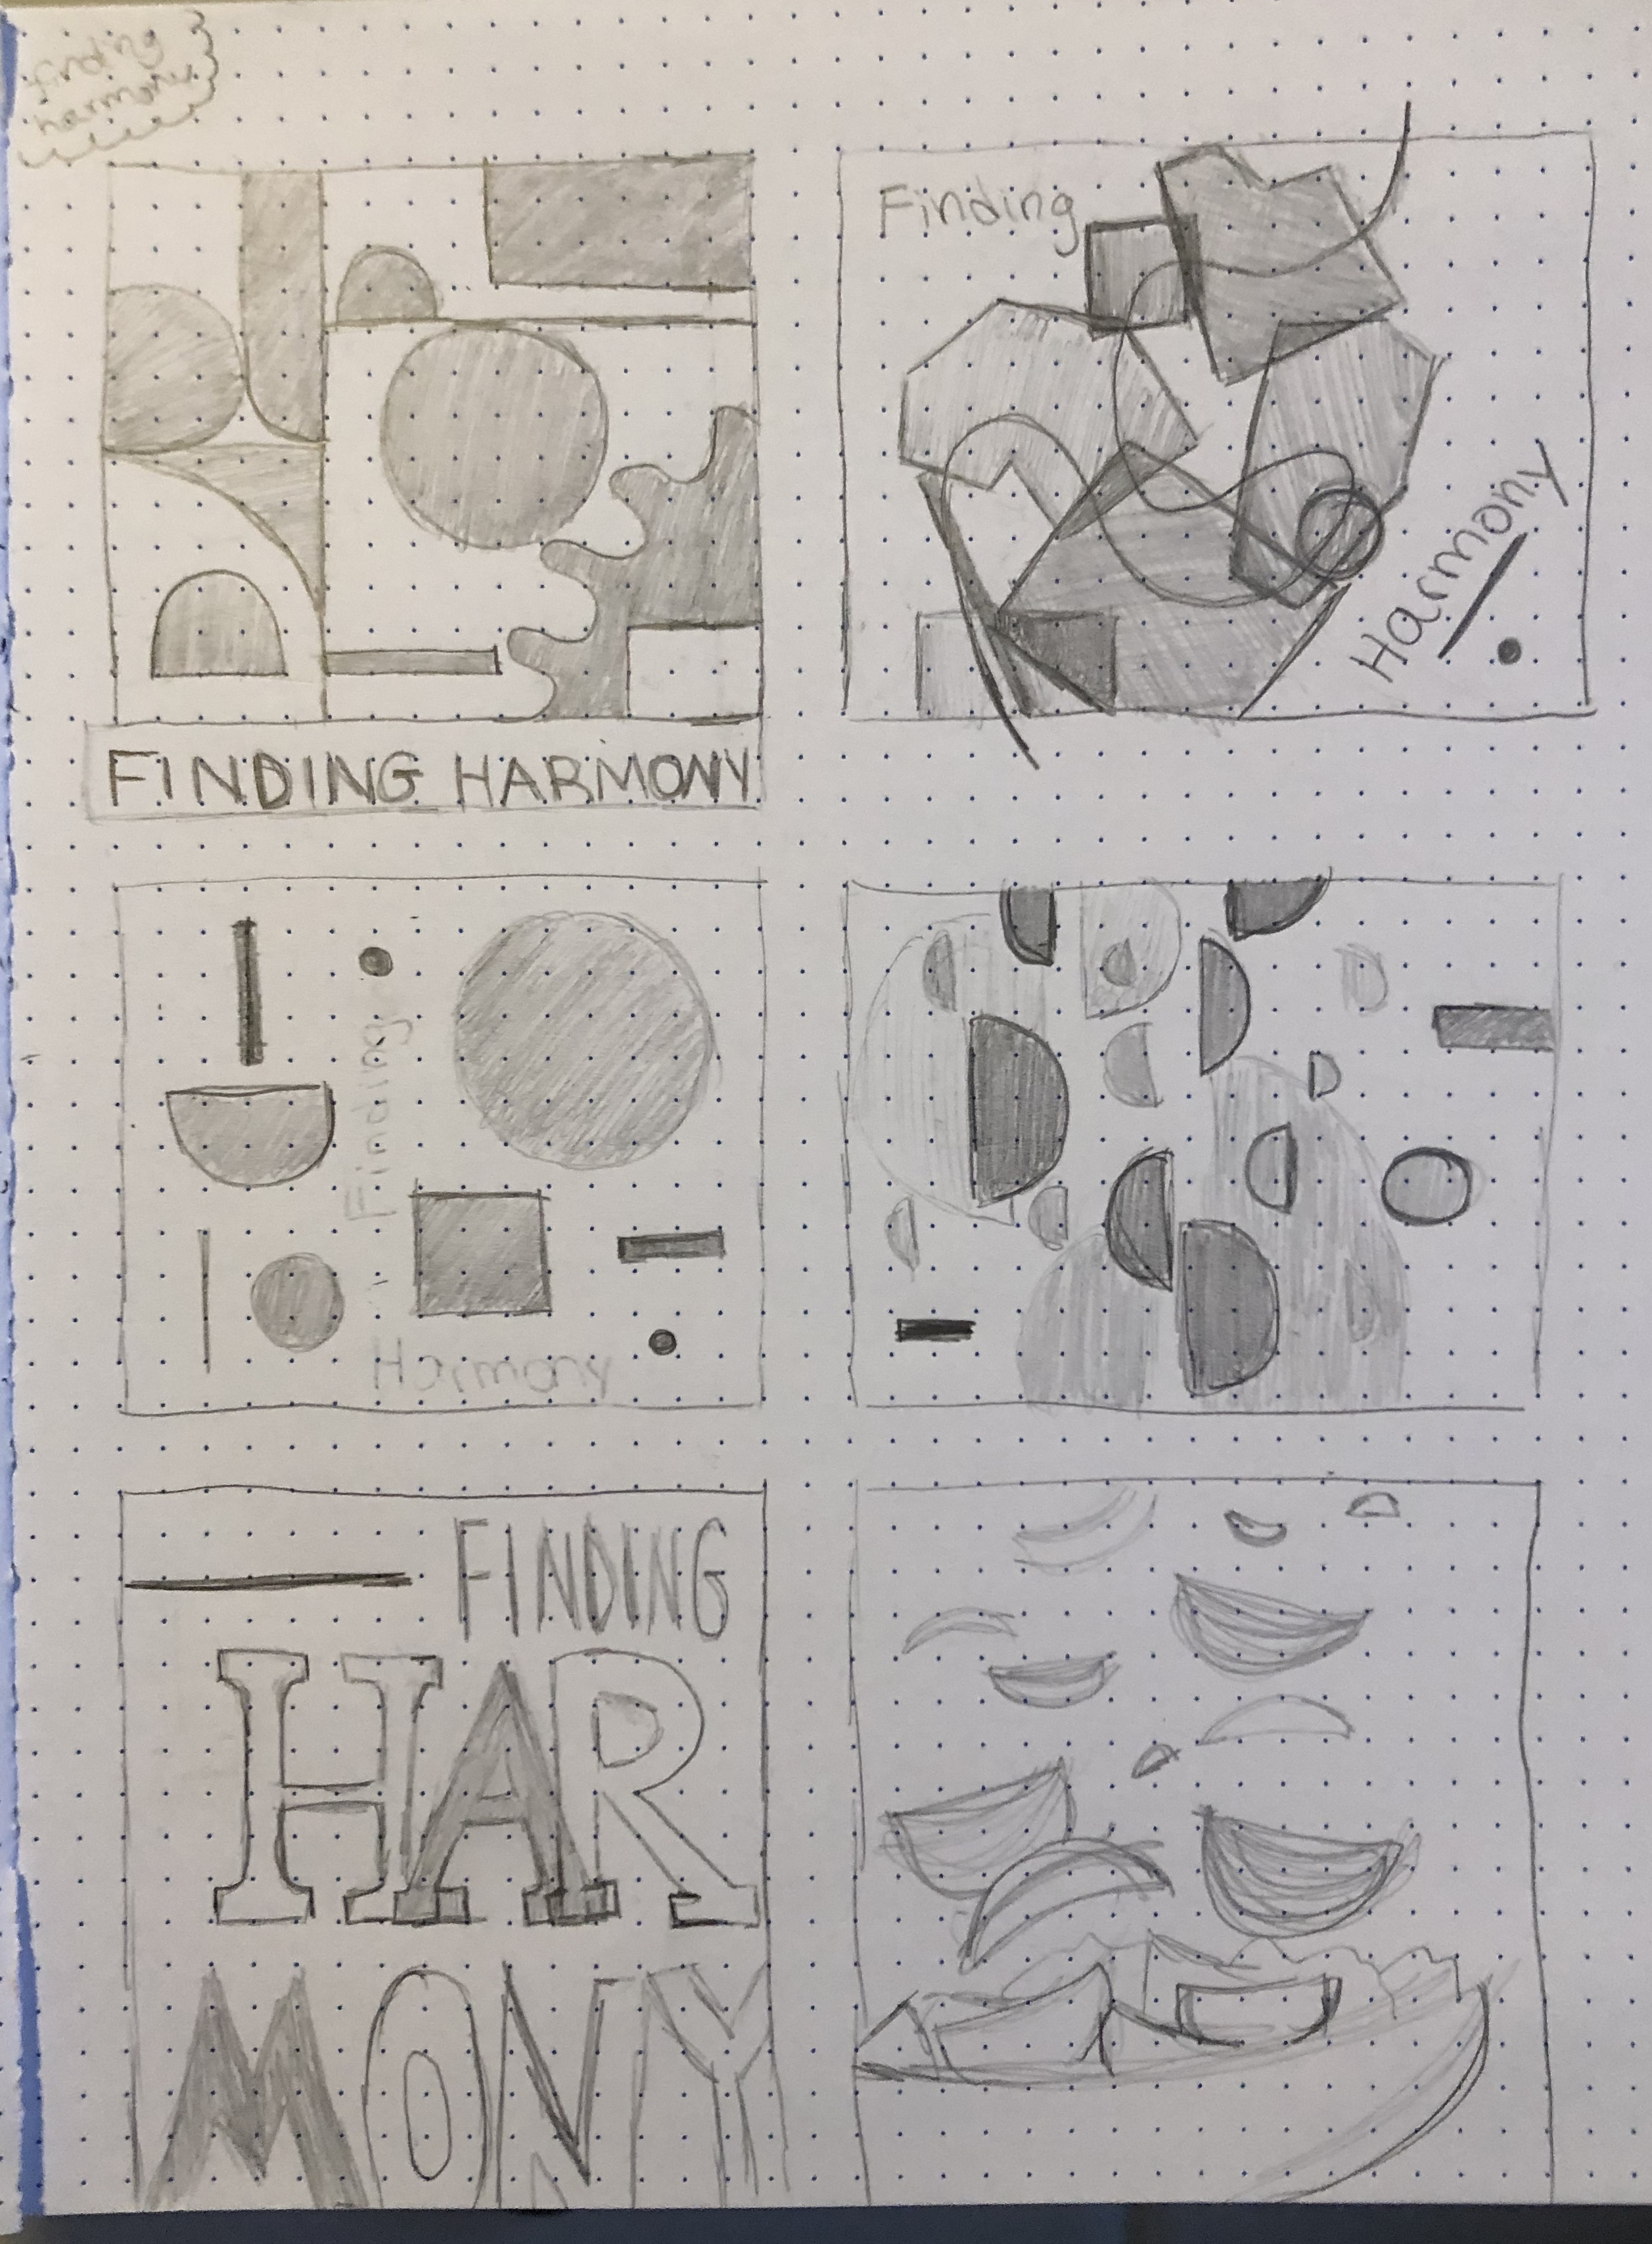 finding
harmony
Finding
Harmony
FINDING HARMONY
Finding
Harmony
FINDING
HAR
MONY